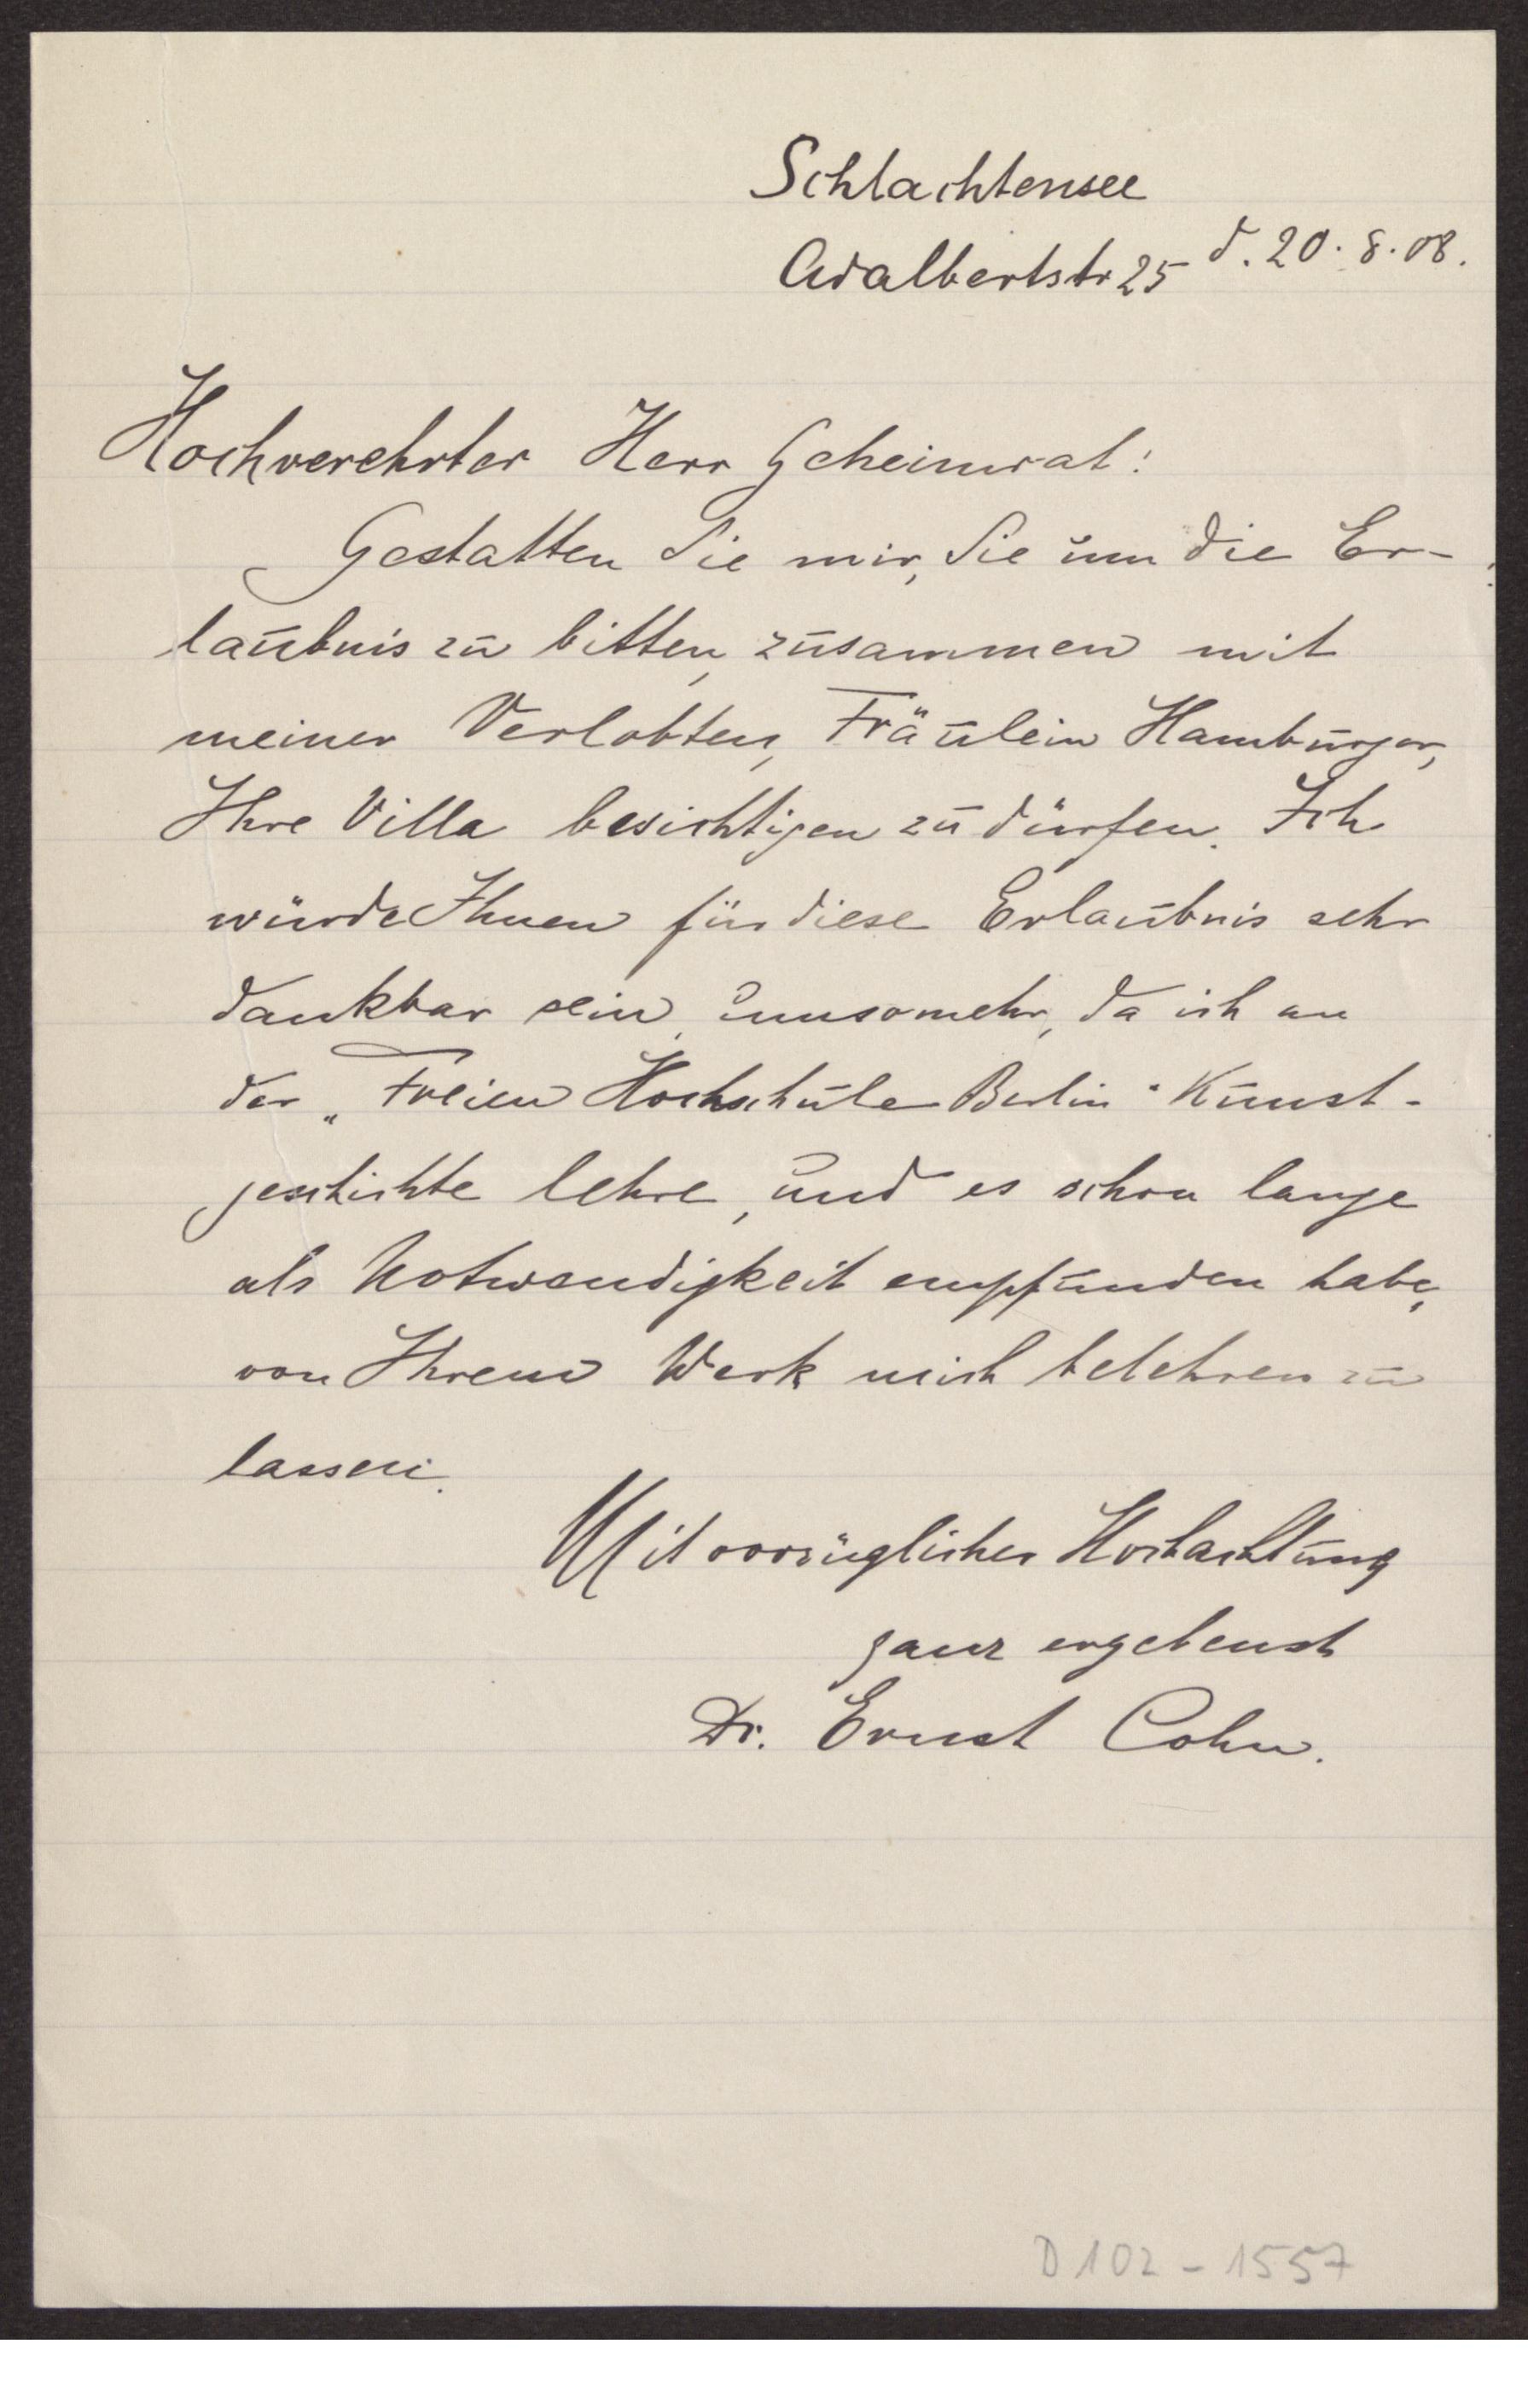 Schlachtensee
Adalbertstr 25 d. 20. 8. 08.
Hochverehrter Herr Geheimrat:
Gestatten Sie mir, Sie um die Er-
laubnis zu bitten, zusammen mit
meiner Verlobten, Fräulein Hamburger,
Ihre Villa besichtigen zu dürfen. Ich
würde Ihnen für diese Erlaubnis sehr
dankbar sein, umsomehr, da ich an
der „Freien Hochschule Berlin" Kunst-
geschichte lehre, und es schon lange
als Notwendigkeit empfunden habe,
von Ihrem Werk mich belehren zu
lassen.
Mit vorzüglicher Hochachtung
ganz ergebenst
Dr. Ernst Cohn.
D 102 - 1557